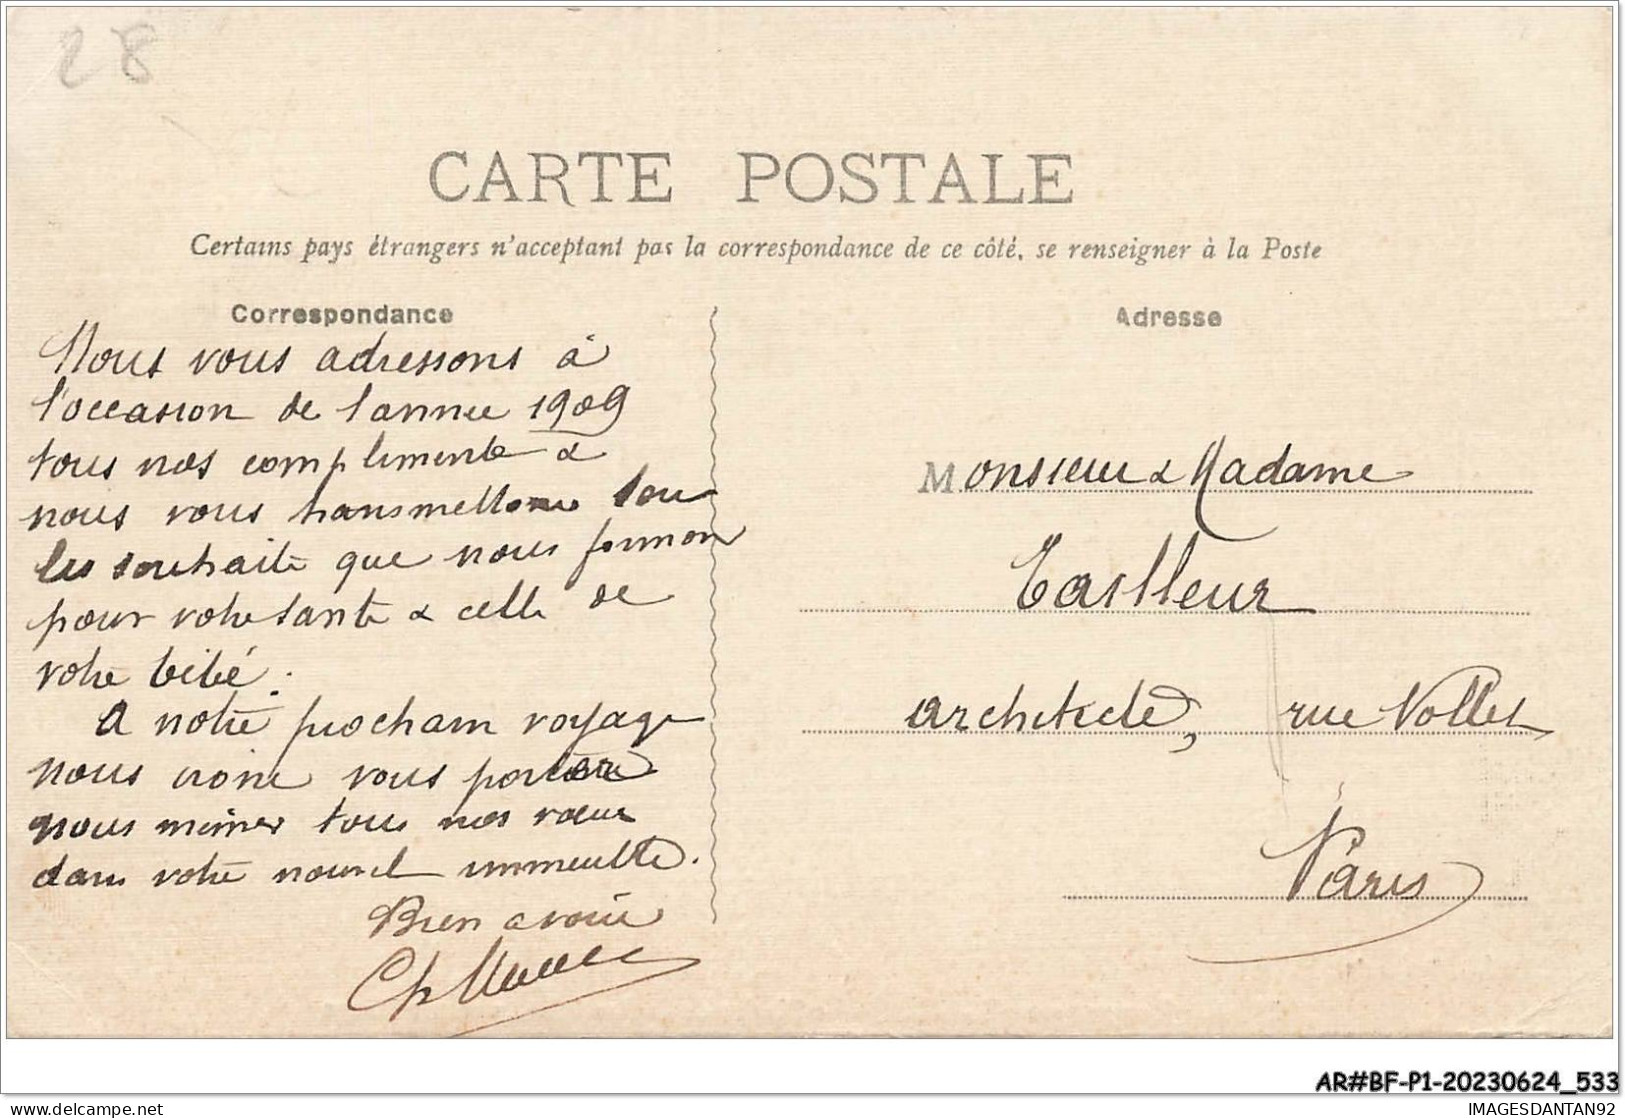 28
CARTE POSTALE
Certains pays étrangers n'acceptant pas la correspondance de ce côté, se renseigner à la Poste
Correspondance
Adresse
Nous vous adressons à
l'occasion de l'année 1909
tous nos compliments &
nous vous transmettons tous
les souhaits que nous formons
pour votre santé & celle de
votre bébé.
A notre prochain voyage
nous irons vous porter
nous mêmes tous nos vœux
dans votre nouvel immeuble.
Bien à vous
Ch
Monsieur & Madame
Tailleur
architecte, rue Nollet
Paris
AR#BF-P1-20230624_533
delcampe.net
IMAGESDANTAN92